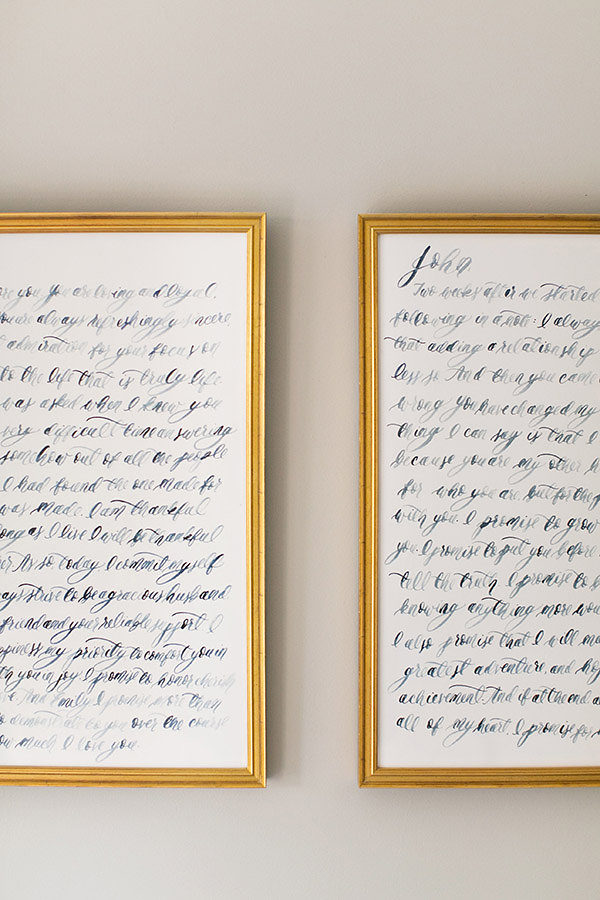 you. You are loving and loyal,
you are always refreshingly sincere.
admiration for your focus on
to the life that is truly life
was asked when I knew you
very difficult time answering
somehow out of all the people
I had found the one made for
was made. I am thankful
long as I live I will be thankful
so today, I commit myself
strive to be a gracious husband
friend and your reliable support. I
my priority to comfort you in
you in joy. I promise to honor cherish
And Emily I promise more than
to demonstrate to you over the course
how much I love you.
John
Two weeks after we started
following in a note: I always
that adding a relationship
less so. And then you came
wrong. You have changed my
thing I can say is that I
because you are my other
for who you are but for the
with you. I promise to grow
you. I promise to put you before
tell the truth. I promise to
knowing anything more
I also promise that I will
greatest adventure, and
achievement. And if at the end
all of my heart, I promise